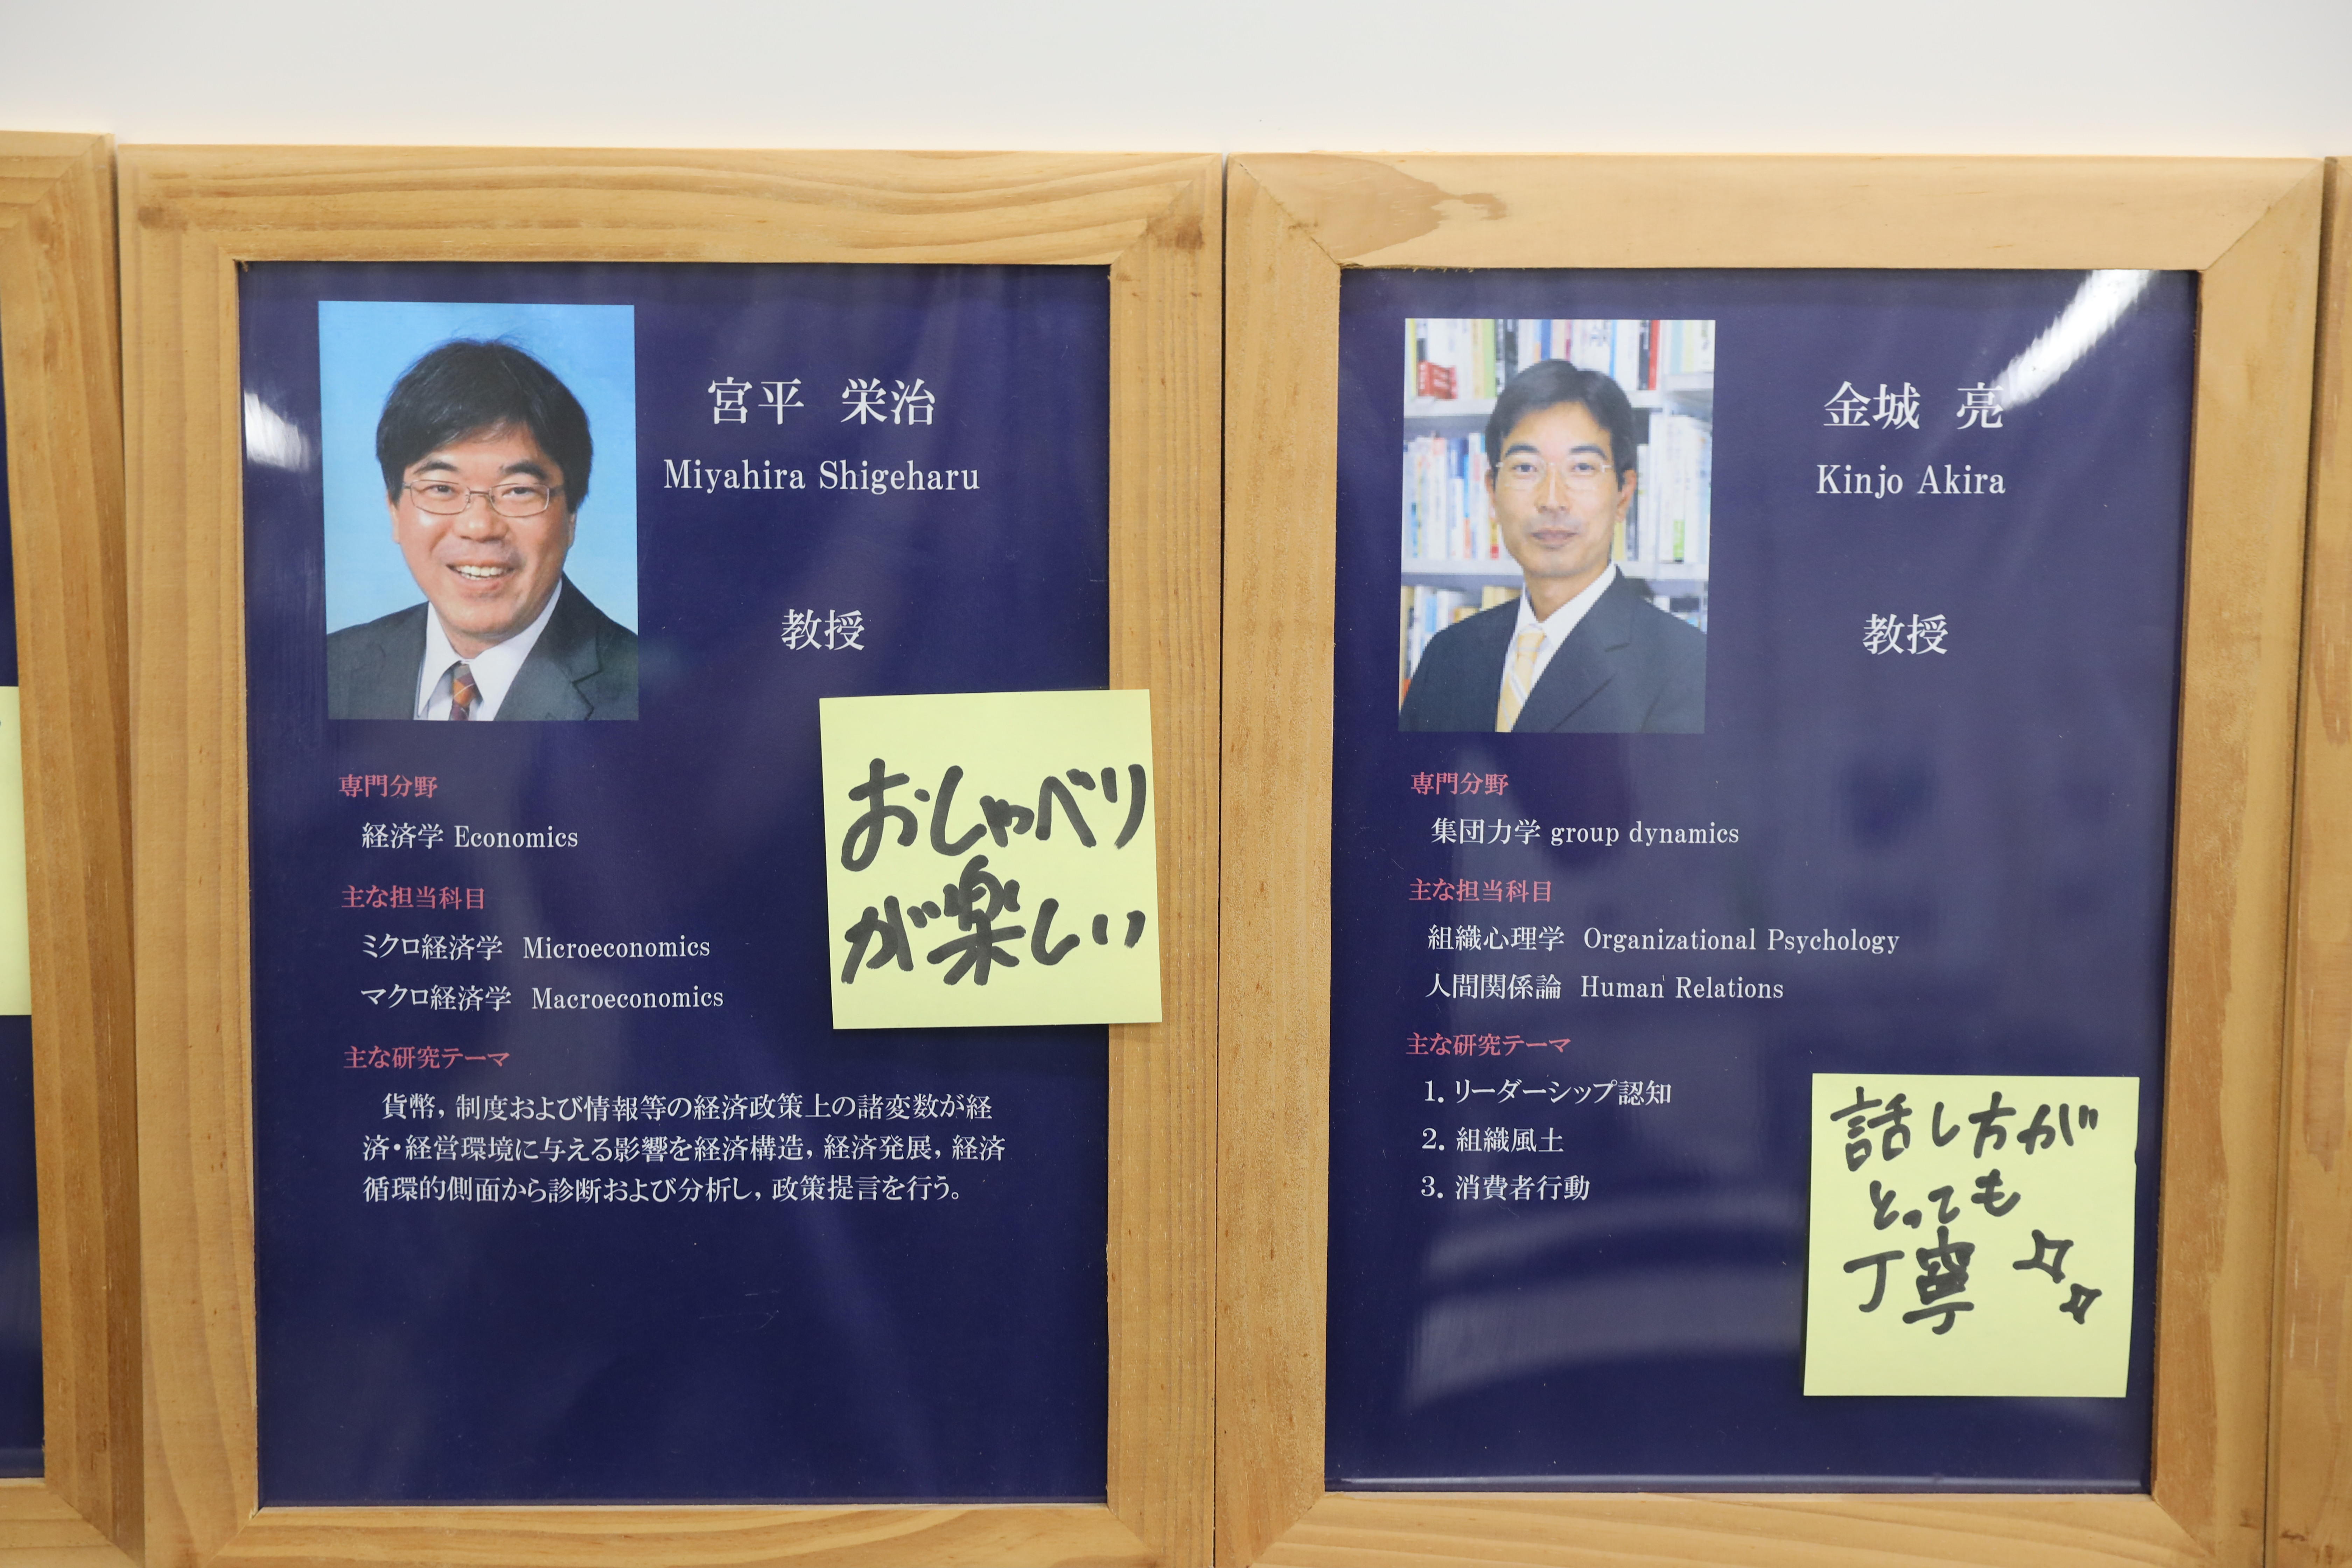 宮平 栄治
Miyahira Shigeharu
教授
専門分野
経済学 Economics
主な担当科目
ミクロ経済学 Microeconomics
マクロ経済学 Macroeconomics
主な研究テーマ
貨幣，制度および情報等の経済政策上の諸変数が経
済・経営環境に与える影響を経済構造，経済発展，経済
循環的側面から診断および分析し，政策提言を行う。
おしゃべり
が楽しい
金城 亮
Kinjo Akira
教授
専門分野
集団力学 group dynamics
主な担当科目
組織心理学 Organizational Psychology
人間関係論 Human Relations
主な研究テーマ
1. リーダーシップ認知
2. 組織風土
3. 消費者行動
話し方が
とっても
丁寧